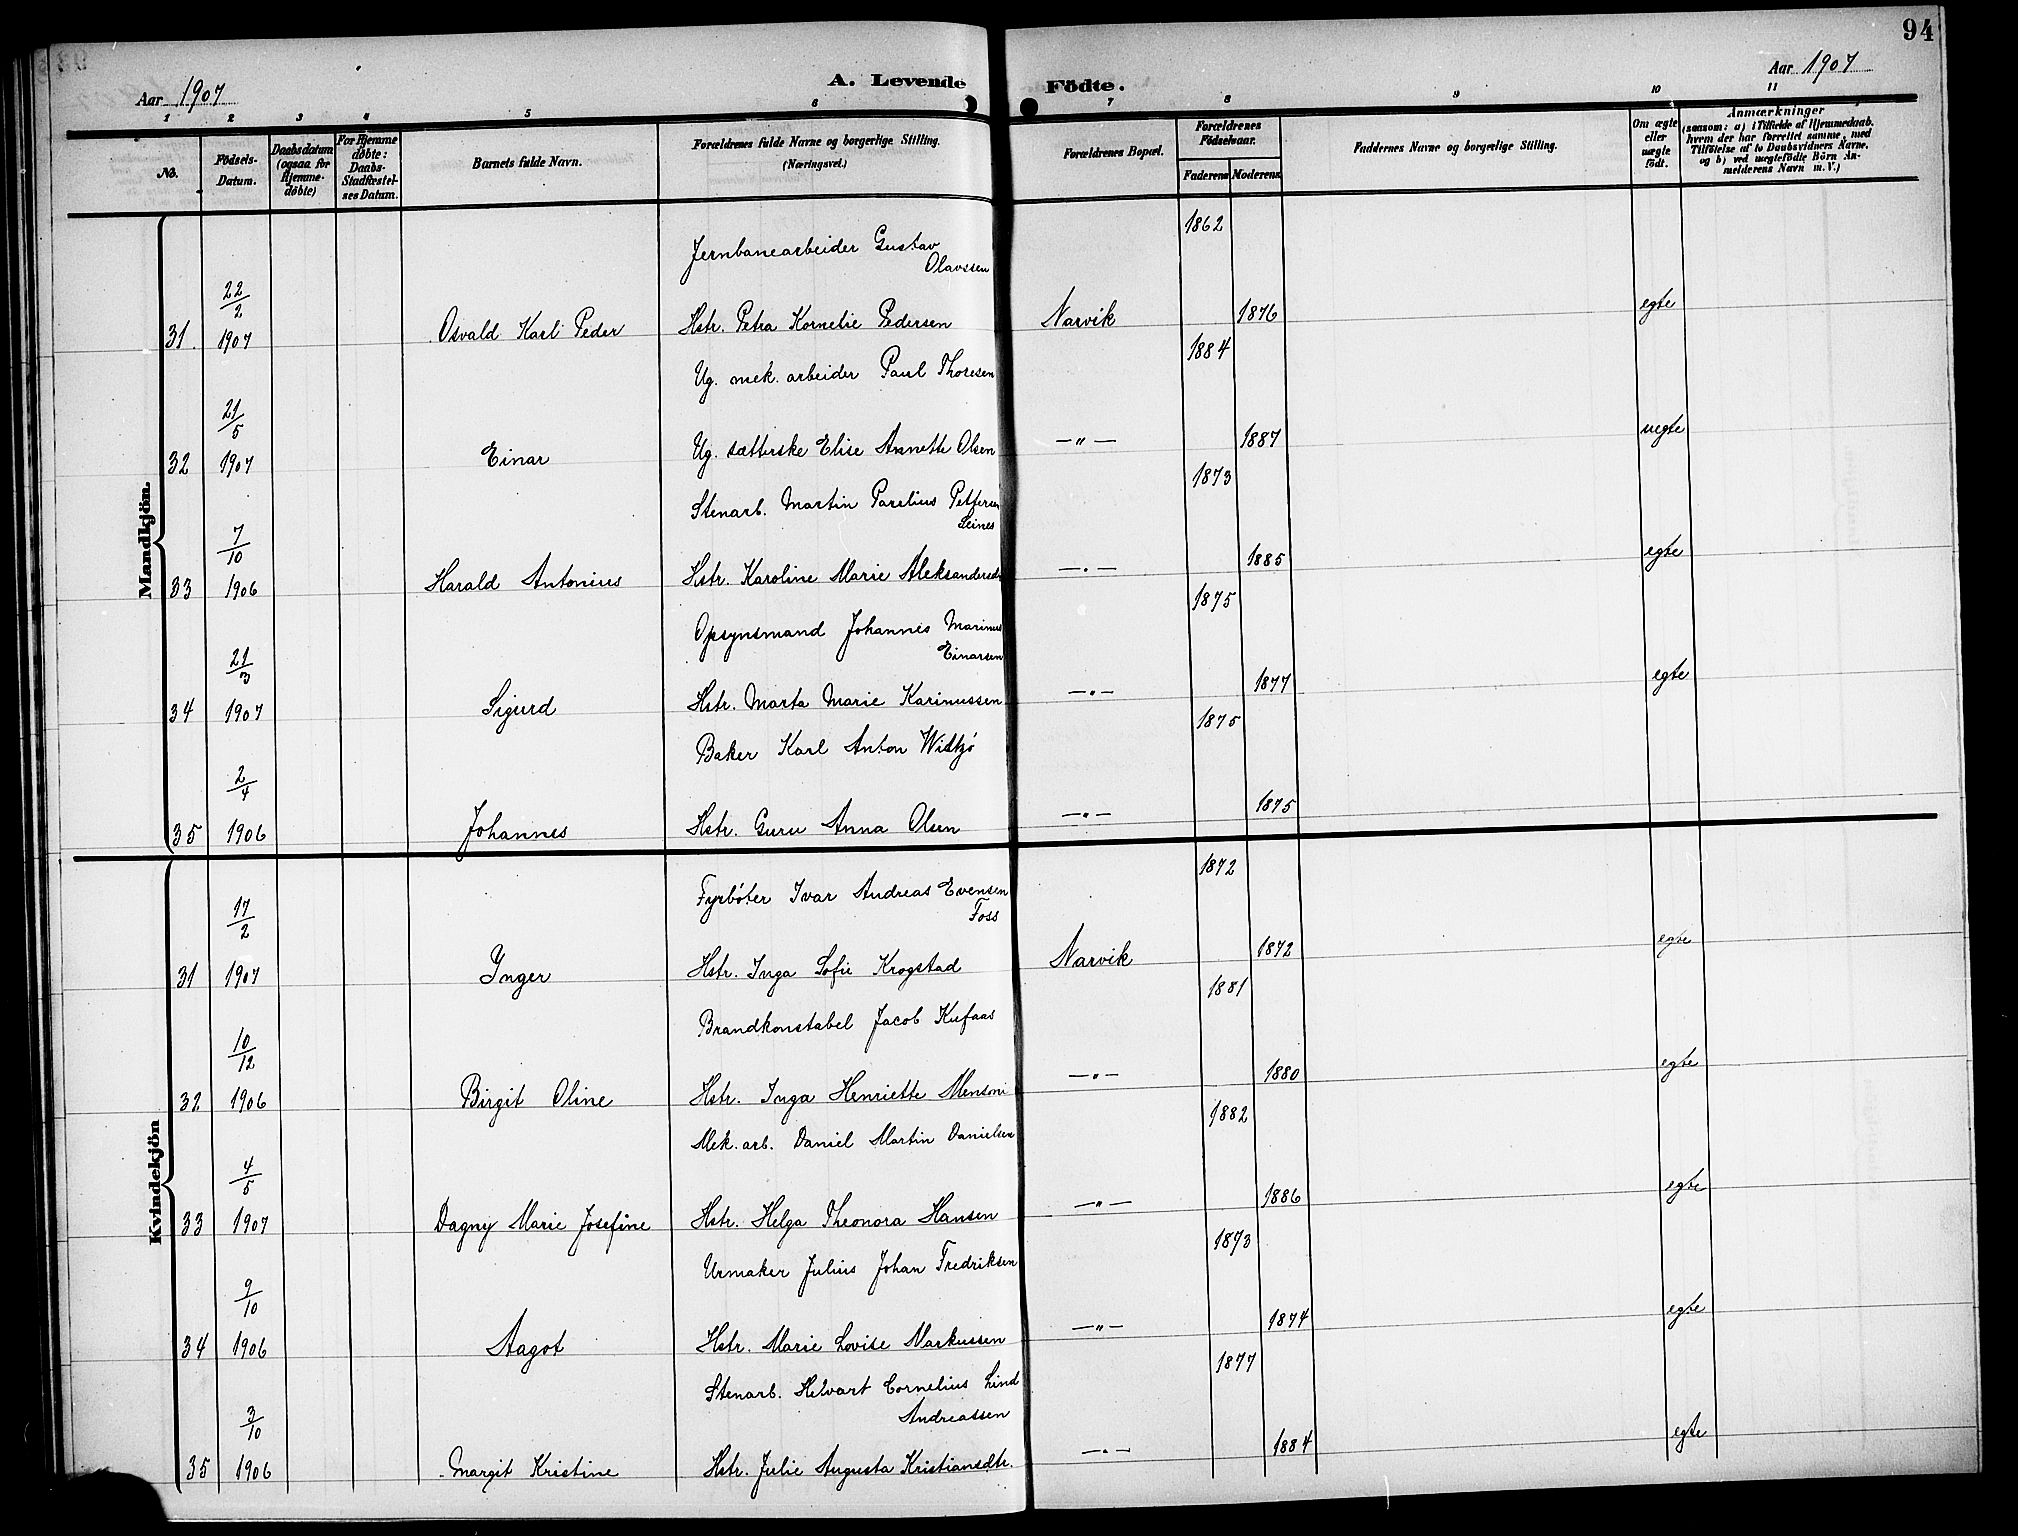 94
Aar 1907
A. Levende Födte.
Aar 1907
1 2 3 4 5 6 7 8 9 10 11
No.
Födsels-Datum.
Daabsdatum (ogsaa for Hjemme-döbte)
For Hjemme döbte: Daabs-Stadfæstel-ses Datum.
Barnets fulde Navn.
Forældrenes fulde Navne og borgerlige Stilling. (Næringsvei.)
Forældrenes Bopæl.
Forældrenes Födselsaar.
Faderens Moderens
Faddernes Navne og borgerlige Stilling.
Om ægte eller uægte födt.
Anmærkninger
(saasom: a) i Tilfælde af Hjemmedaab.
hvem der har forrettet samme, med
Tilföielse af to Daabsvidners Navne.
og b) ved uægtefödte Börn An-
melderens Navn m. V.)
Mandkjön.
1862
Jernbanearbeider Gustav
Olavssen
22/2
31. 1907 Osvald Karl Peder Hstr. Petra Kornelie Pedersen Narvik 1876 egte
1884
Ug. mek. arbeider Paul Thoresen
21/5
32 1907 Einar Ug. sætterske Elise Annette Olsen —"— 1887 uegte
1873
Stenarb. Martin Parelius Pettersen
Leines
7/10
33 1906 Harald Antonius Hstr. Karoline Marie Aleksandersdtr —"— 1885 egte
1875
Opsynsmand Johannes Marinus
Einarsen
21/3
34 1907 Sigurd Hstr. Marta Marie Karinussen —"— 1877 egte
1875
Baker Karl Anton
2/4
35 1906 Johannes Hstr. Guru Anna Olsen —"— 1875
Kvindekjön
1872
Fyrbøter Ivar Andreas Evensen
Foss
17/2
31 1907 Ynger Hstr. Inga Sofie Krogstad Narvik 1872 egte
1881
Brandkonstabel Jacob Kufaas
10/12
32 1906 Birgit Oline Hstr. Inga Henriette —"— 1880 egte
1882
Mek. arb. Daniel Martin Danielsen
4/5
33 1907 Dagny Marie Josefine Hstr. Helga Theonora Hansen —"— 1886 egte
1873
Urmaker Julius Johan Fredriksen
9/10
34 1906 Aagot Hstr. Marie Lovise Markussen —"— 1874 egte
1877
Stenarb. Helvart Cornelius Lind
Andreassen
3/10
35 1906 Margit Kristine Hstr. Julie Augusta Kristiansdtr. —"— 1884 egte